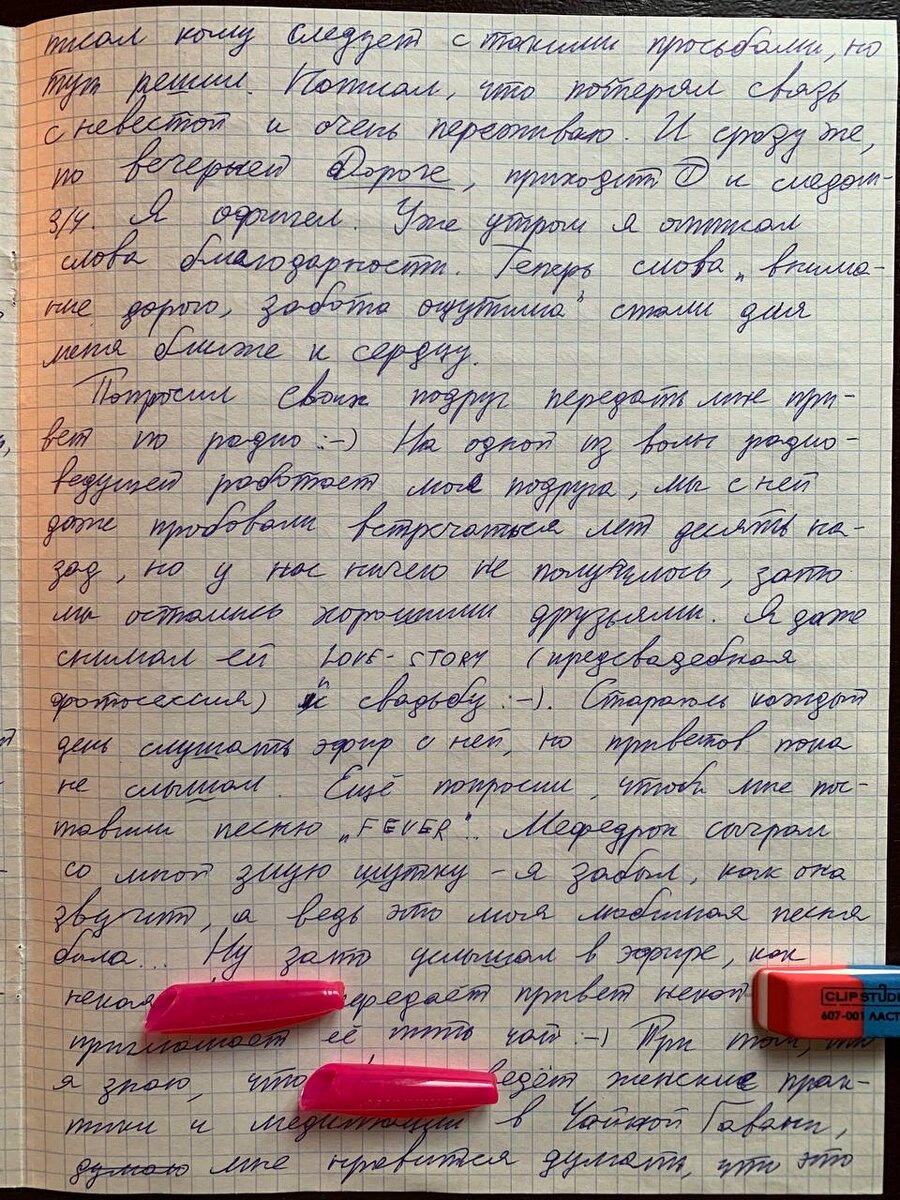 писал кому следует с такими просьбами, но
тут решил. Написал, что потерял связь
с невестой и очень переживаю. И сразу же,
по вечерней Дороге, приходит
3/4. Я офигел. Уже утром я отписал
слова благодарности. Теперь слова „внима-
ние дорого, забота ощутима" стали для
меня ближе к сердцу.
Попросил своих подруг передать мне при-
вет по радио :-) На одной из волн радио-
ведущей работает моя подруга, мы с ней
даже пробовали встречаться лет десять на-
зад, но у нас ничего не получилось, зато
мы остались хорошими друзьями. Я даже
снимал ей LOVE-STORY (предсвадебная
фотосессия) и свадьбу :-). Стараюсь каждый
день слушать эфир с ней, но приветов пока
не слышал. Ещё попросил, чтоб мне пос-
тавили песню „FEVER". Мефедрон сыграл
со мной злую шутку - я забыл, как она
звучит, а ведь это моя любимая песня
была... Ну зато услышал в эфире, как
некая передаёт привет некой
приглашает её пить чай :-) При том, что
я знаю, что ведёт женские прак-
тики и медитации в Чайной Гавани,
думаю мне нравится думать, что это
CLIP STUDI
607-001 ЛАСТ